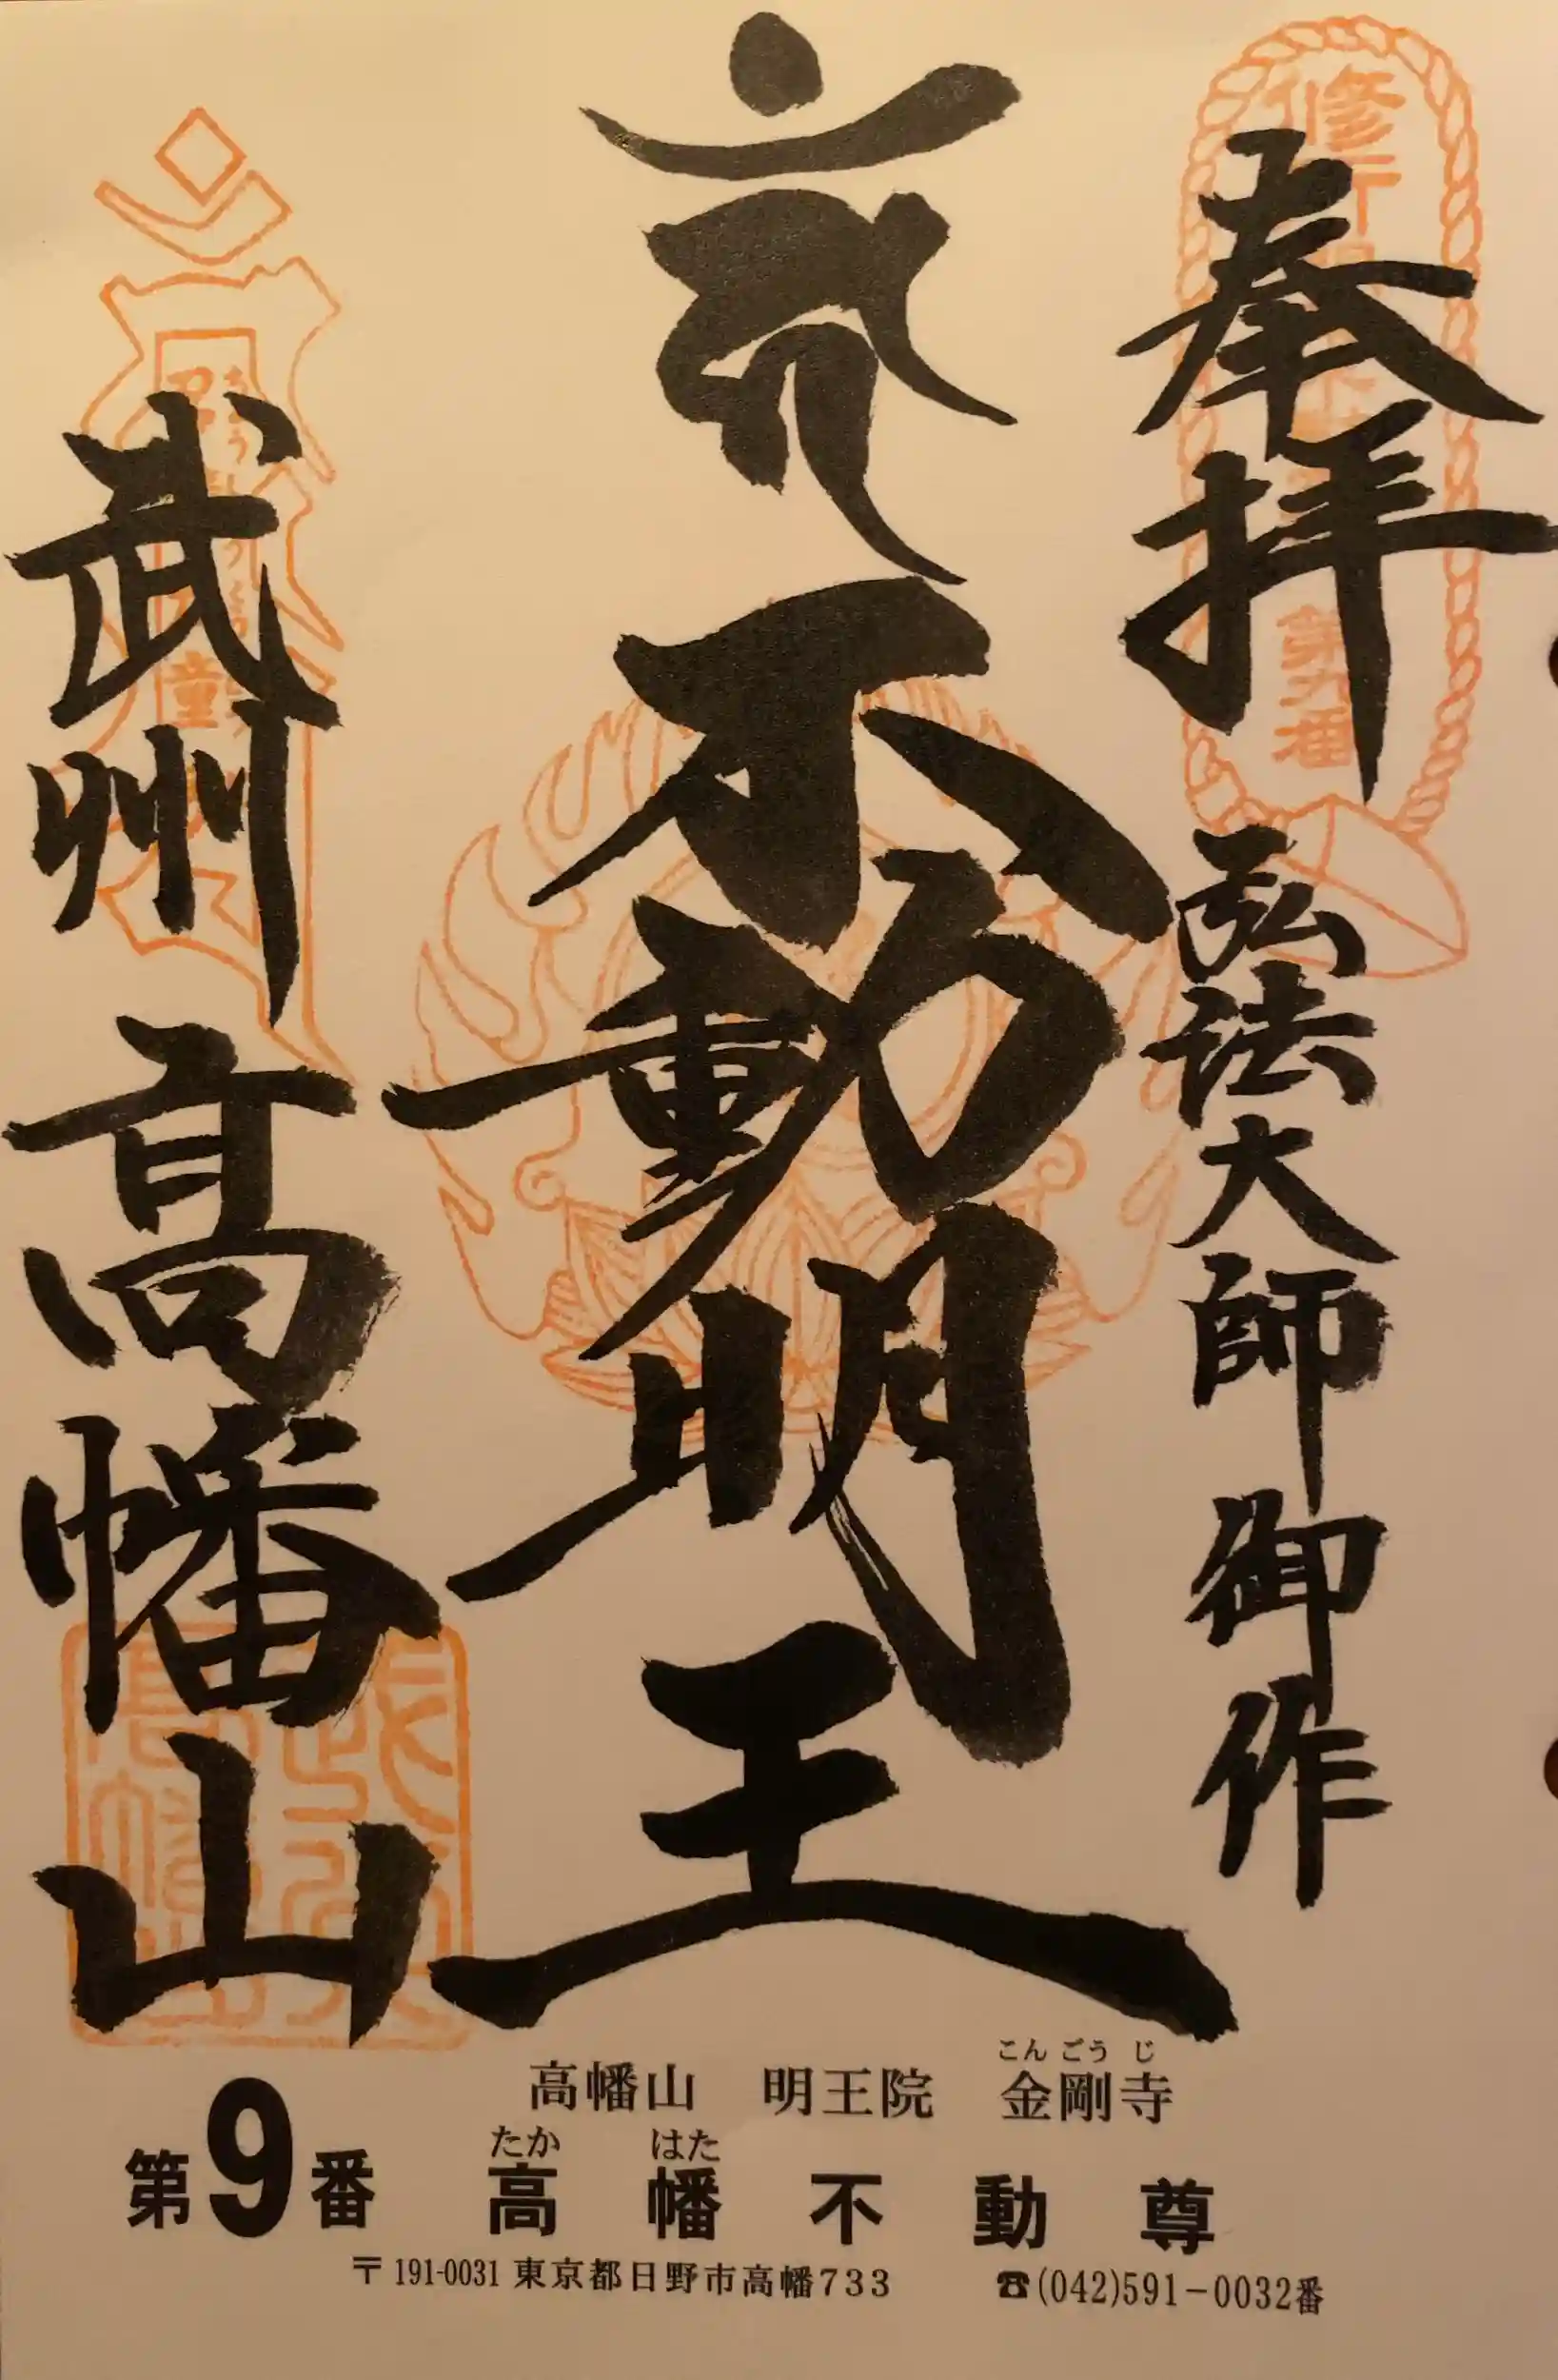 奉拝
弘法大師御作
不動明王
武州
高幡山
第九番
高幡山 明王院 金剛寺
こんごうじ
第9番
高幡不動尊
たか はた
〒191-0031 東京都日野市高幡733 ☎(042)591-0032番